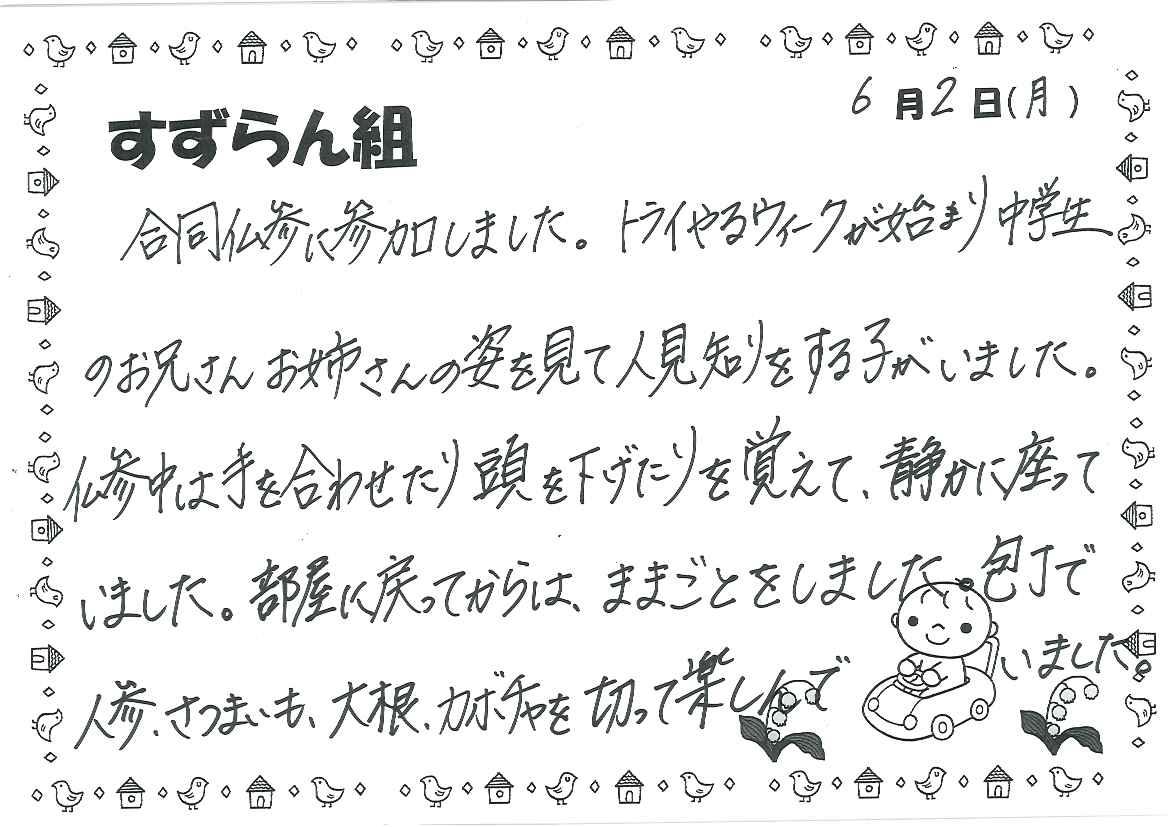 6月2日(月)
すずらん組
合同仏参に参加しました。トライやるウィークが始まり中学生
のお兄さんお姉さんの姿を見て人見知りをする子がいました。
仏参中は手を合わせたり頭を下げたりを覚えて、静かに座って
いました。部屋に戻ってからは、ままごとをしました。包丁で
人参、さつまいも、大根、カボチャを切って楽しんでいました。